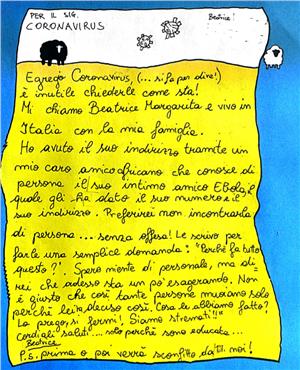 PER IL SIG.
CORONAVIRUS
Beatrice!
Egregio Coronavirus, (... si fa per dire!)
è inutile chiederle come sta!
Mi chiamo Beatrice Margarita e vivo in
Italia con la mia famiglia.
Ho avuto il suo indirizzo tramite un
mio caro amico africano che conosce di
persona il suo intimo amico EBola, il
quale gli ha dato il suo numero e il
suo indirizzo. Preferirei non incontrarla
di persona ... senza offesa! Le scrivo per
farle una semplice domanda: "Perché fa tutto
questo?". Spero niente di personale, ma di=
rei che adesso sta un po' esagerando. Non
è giusto che così tante persone muoiano solo
perché lei ha deciso così. Cosa le abbiamo fatto?
La prego, si fermi! Siamo stremati!!"
Cordiali saluti... solo perché sono educata...
Beatrice
P.S. prima o poi verrà sconfitto da tutti noi!